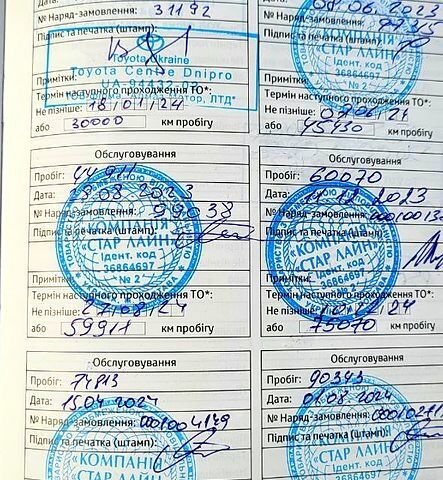 № Наряд-замовлення: 31192
Підпис та печатка (штамп):
Toyota Ukraine
Toyota Centre Dnipro
Примітки:
Термін наступного проходження ТО*:
Не пізніше: 18/01/24
або 30000 км пробігу
08.06.2023
№ Наряд-замовлення:
Підпис та печатка (штамп):
Ідент. код
36864697
№ 2
Примітки:
Термін наступного проходження ТО*:
Не пізніше: 07/06/24
або 45430 км пробігу
Обслуговування
Пробіг: 44911
Дата: 28.08.2023
№ Наряд-замовлення: 99038
Підпис та печатка (штамп):
«КОМПАНІЯ
СТАР ЛАЙН»
Ідент. код
36864697
№ 2
Примітки:
Термін наступного проходження ТО*:
Не пізніше: 27/08/24
або 59911 км пробігу
Обслуговування
Пробіг: 60070
Дата: 12.2023
№ Наряд-замовлення:
Підпис та печатка (штамп):
«КОМПАНІЯ
СТАР ЛАЙН»
Ідент. код
36864697
№ 2
Примітки:
Термін наступного проходження ТО*:
Не пізніше:
або 75070 км пробігу
Обслуговування
Пробіг: 74813
Дата: 15.04.2024
№ Наряд-замовлення: 0001004149
Підпис та печатка (штамп):
«КОМПАНІЯ
СТАР ЛАЙН»
Обслуговування
Пробіг: 90343
Дата: 01.08.2024
№ Наряд-замовлення:
Підпис та печатка (штамп):
«КОМПАНІЯ
СТАР ЛАЙН»
Ідент. код